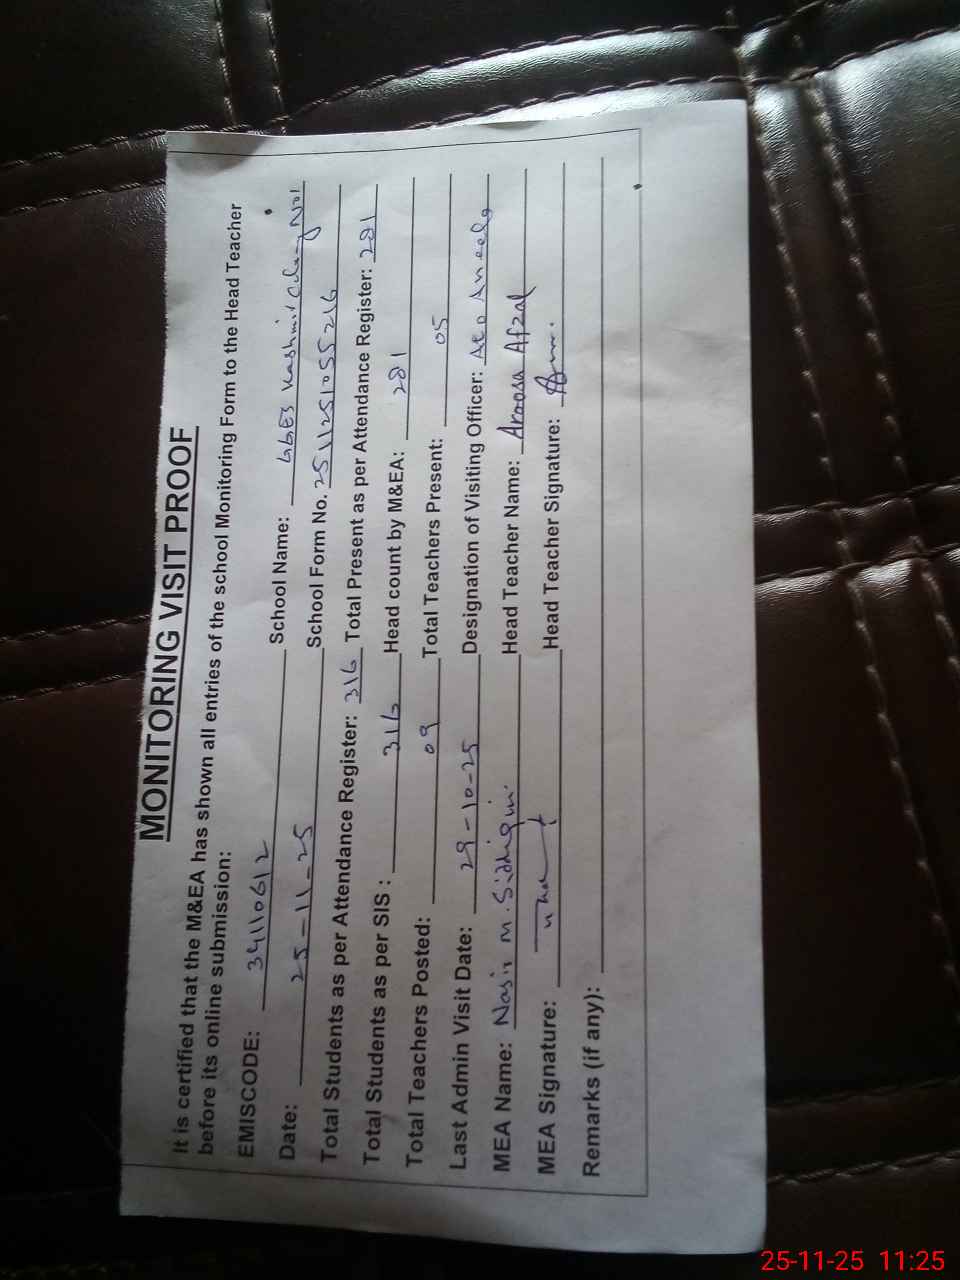 MONITORING VISIT PROOF
It is certified that the M&EA has shown all entries of the school Monitoring Form to the Head Teacher
before its online submission:
EMISCODE: 34110612 School Name: GGES Kashmir Colony No1
Date: 25-11-25 School Form No. 2511251055216
Total Students as per Attendance Register: 316 Total Present as per Attendance Register: 281
Total Students as per SIS : 316 Head count by M&EA: 281
Total Teachers Posted: 09 Total Teachers Present: 05
Last Admin Visit Date: 29-10-25 Designation of Visiting Officer: AEO Aneela
MEA Name: Nasir M. Siddiqui. Head Teacher Name: Aroosa Afzal
MEA Signature: Head Teacher Signature:
Remarks (if any):
25-11-25 11:25